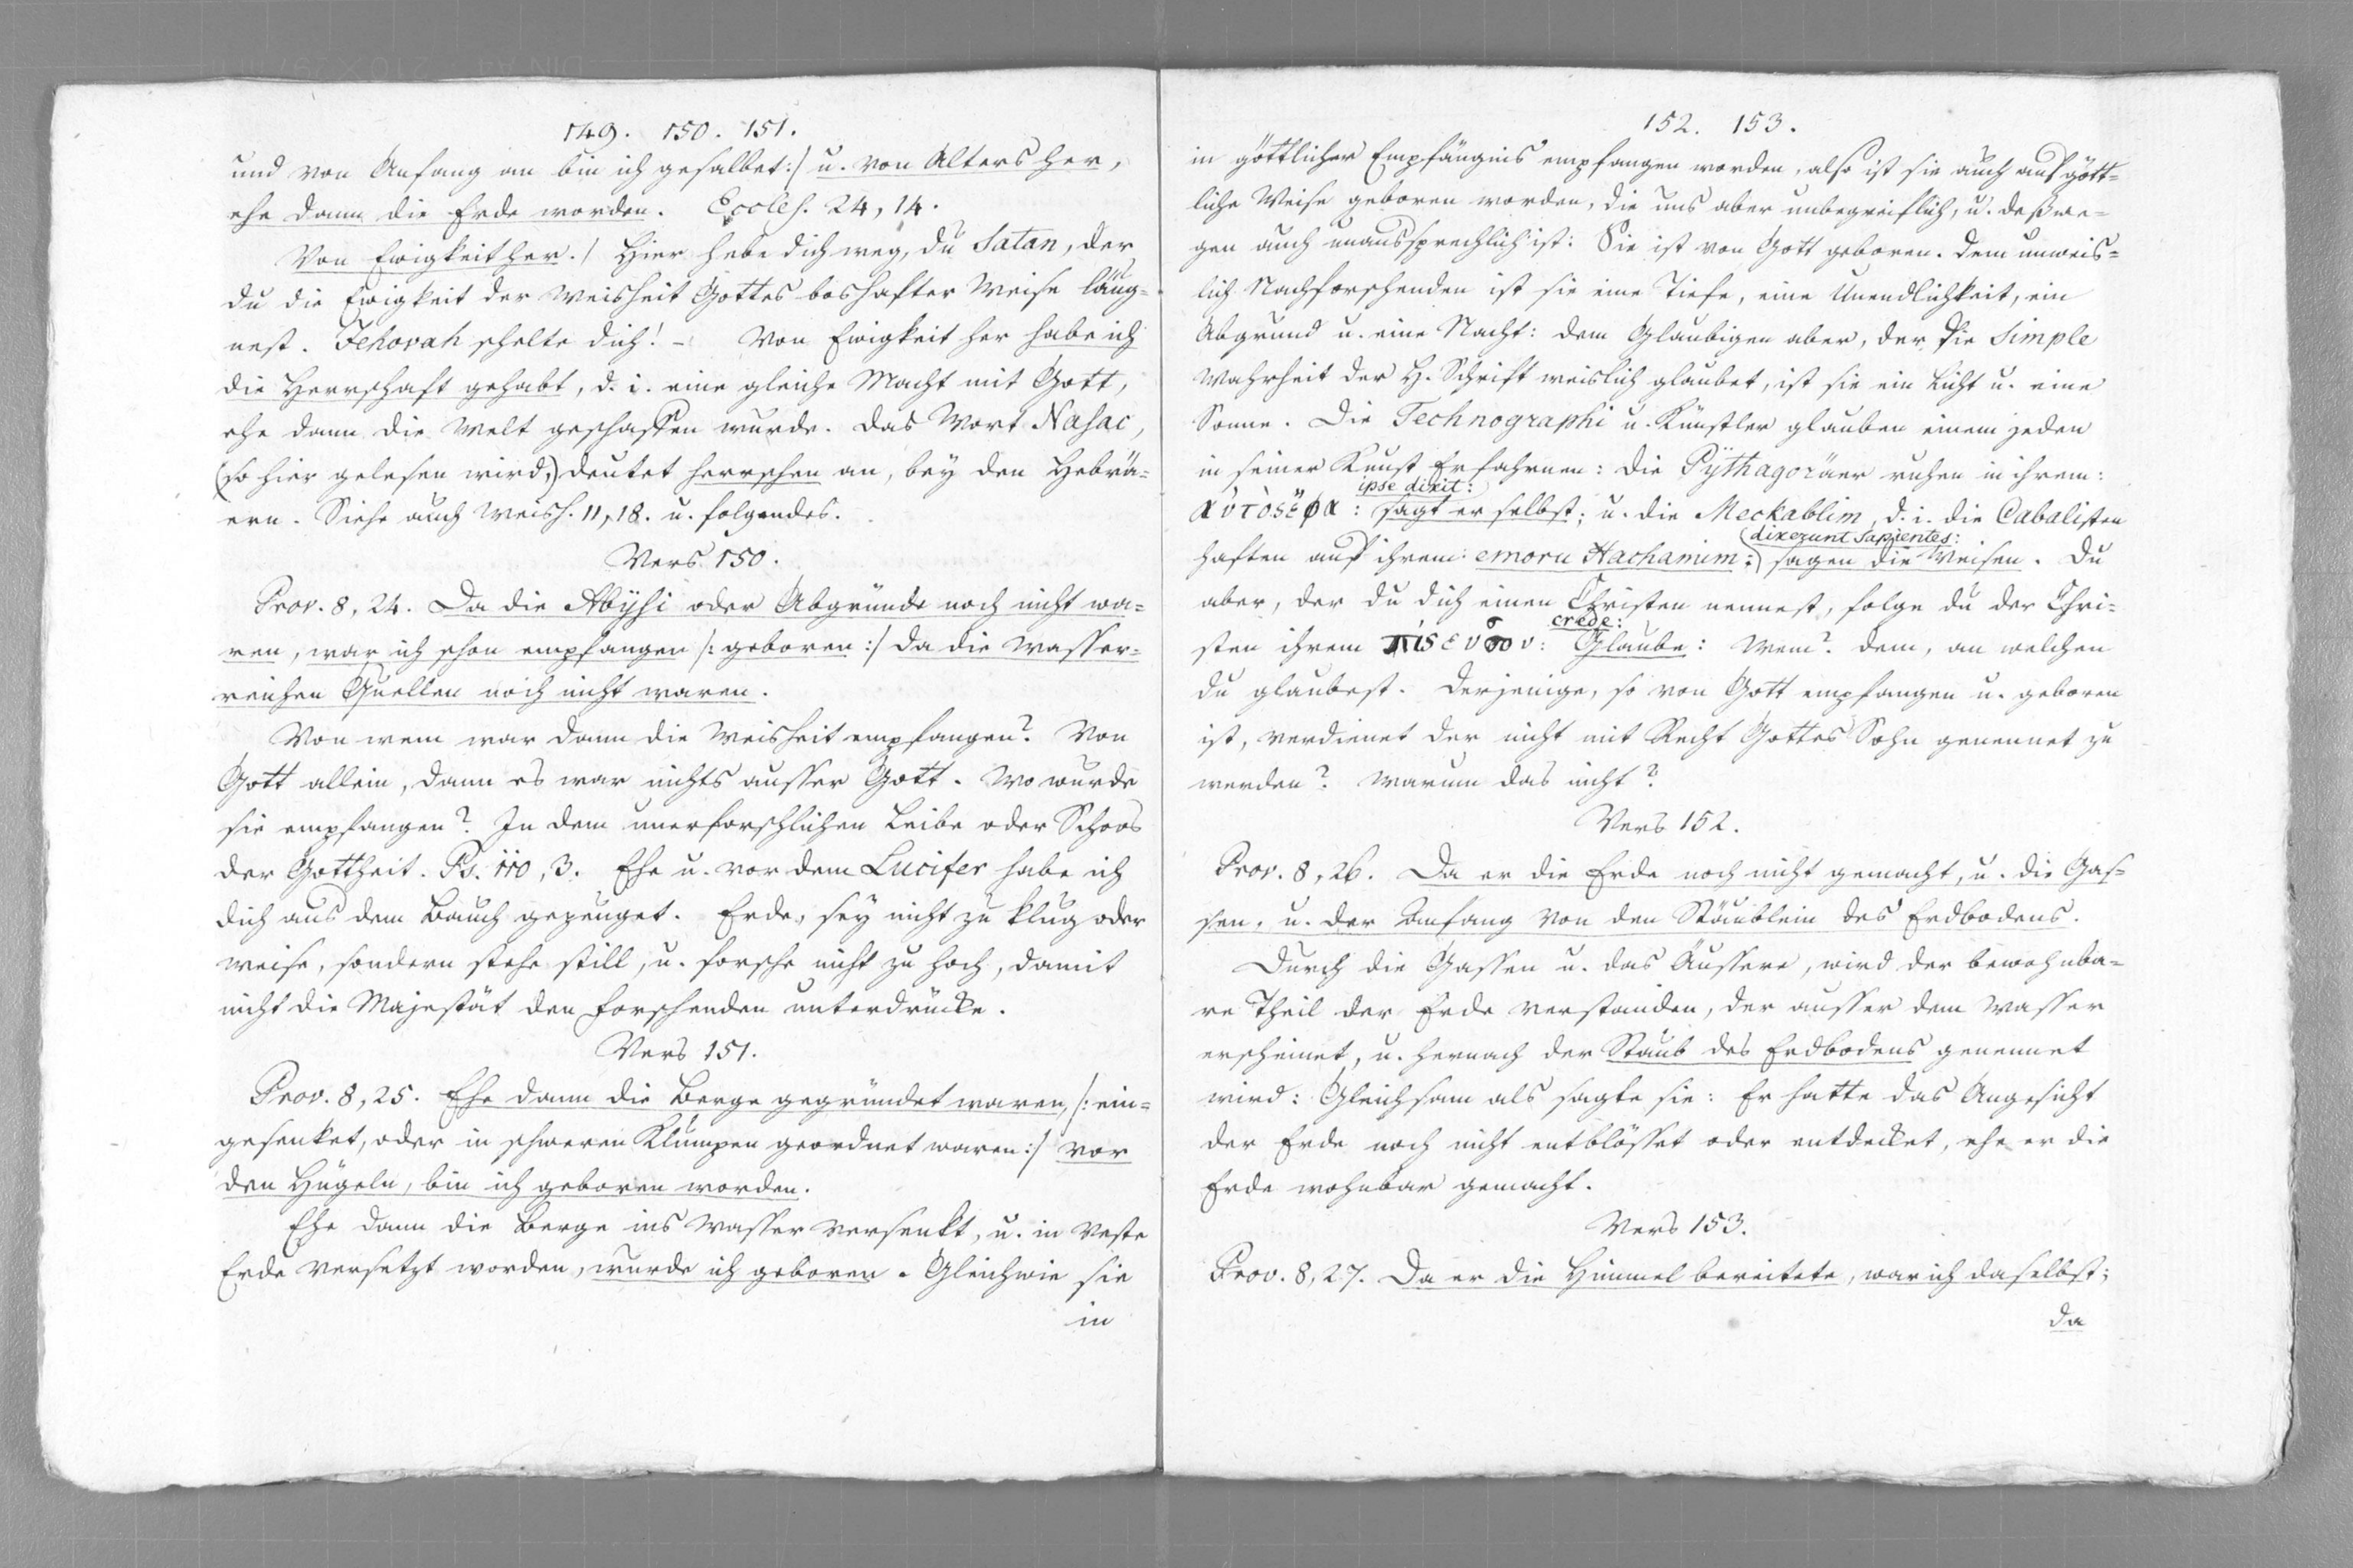 149. 150. 151.
und von Anfang an bin ich gesalbet:/ u. von Alters her,
ehe dann die Erde worden. Eccles. 24, 14.
Von Ewigkeit her./ Hier hebe dich weg, du Satan, der
du die Ewigkeit der Weisheit Gottes boshafter Weise läug-
nest. Jehovah schelte dich! – Von Ewigkeit her habe ich
die Herrschaft gehabt, d. i. eine gleiche Macht mit Gott,
ehe dann die Welt geschaffen wurde. Das Wort Nasac,
(so hier gelesen wird,) deutet herrschen an, bey den Hebrä-
ern. Siehe auch Weish. 11, 18. u. folgendes.
Vers 150.
Prov. 8, 24. Da die Abÿssi oder Abgründe noch nicht wa-
ren, war ich schon empfangen /: geboren :/ da die wasser-
reichen Quellen noch nicht waren.
Von wem war dann die Weisheit empfangen? Von
Gott allein, dann es war nichts ausser Gott. Wo wurde
sie empfangen? In dem unerforschlichen Leibe oder Schoos
der Gottheit. Ps. 110, 3. Ehe u. vor dem Lucifer habe ich
dich aus dem Bauch gezeuget. Erde, sey nicht zu klug oder
weise, sondern stehe still, u. forsche nicht zu hoch, damit
nicht die Majestät den forschenden unterdrücke.
Vers 151.
Prov. 8, 25. Ehe dann die Berge gegründet waren, /: ein-
gesenket, oder in schweren Klumpen geordnet waren :/ vor
den Hügeln, bin ich geboren worden.
Ehe dann die Berge ins Wasser versenkt, u. in veste
Erde versetzt worden, wurde ich geboren. Gleichwie sie
in
152. 153.
in göttlicher Empfängnis empfangen worden, also ist sie auch auf gött-
liche Weise geboren worden, die uns aber unbegreiflich, u. deßwe-
gen auch unaussprechlich ist: Sie ist von Gott geboren. Dem unweis-
lich Nachforschenden ist sie eine Tiefe, eine Unendlichkeit, ein
Abgrund u. eine Nacht: dem Glaubigen aber, der die Simple
Wahrheit der H. Schrift weislich glaubet, ist sie ein Licht u. eine
Sonne. Die Technographi u. Künstler glauben einem jeden
in seiner Kunst Erfahrnen: die Pÿthagoräer ruhen in ihrem:
ipse dixit:
: sagt er selbst; u. die Meckablim, d. i. die Cabalisten
(dixerunt Sapientes:
haften auf ihrem: emoru Hachamim:) sagen die Weisen. Du
aber, der du dich einen Christen nennest, folge du der Chri-
crede:
sten ihrem : Glaube: Wem? dem, an welchen
du glaubest. Derjenige, so von Gott empfangen u. geboren
ist, verdienet der nicht mit Recht Gottes Sohn genennet zu
werden? Warum das nicht?
Vers 152.
Prov. 8, 26. Da er die Erde noch nicht gemacht, u. die Gas-
sen, u. der Anfang von den Stäublein des Erdbodens.
Durch die Gassen u. das Äussere, wird der bewohnba-
re Theil der Erde verstanden, der ausser dem Wasser
erscheinet, u. hernach der Staub des Erdbodens genennet
wird: Gleichsam als sagte sie: Er hatte das Angesicht
der Erde noch nicht entblösset oder entdecket, ehe er die
Erde wohnbar gemacht.
Vers 153.
Prov. 8, 27. Da er die Himmel bereitete, war ich daselbst;
da